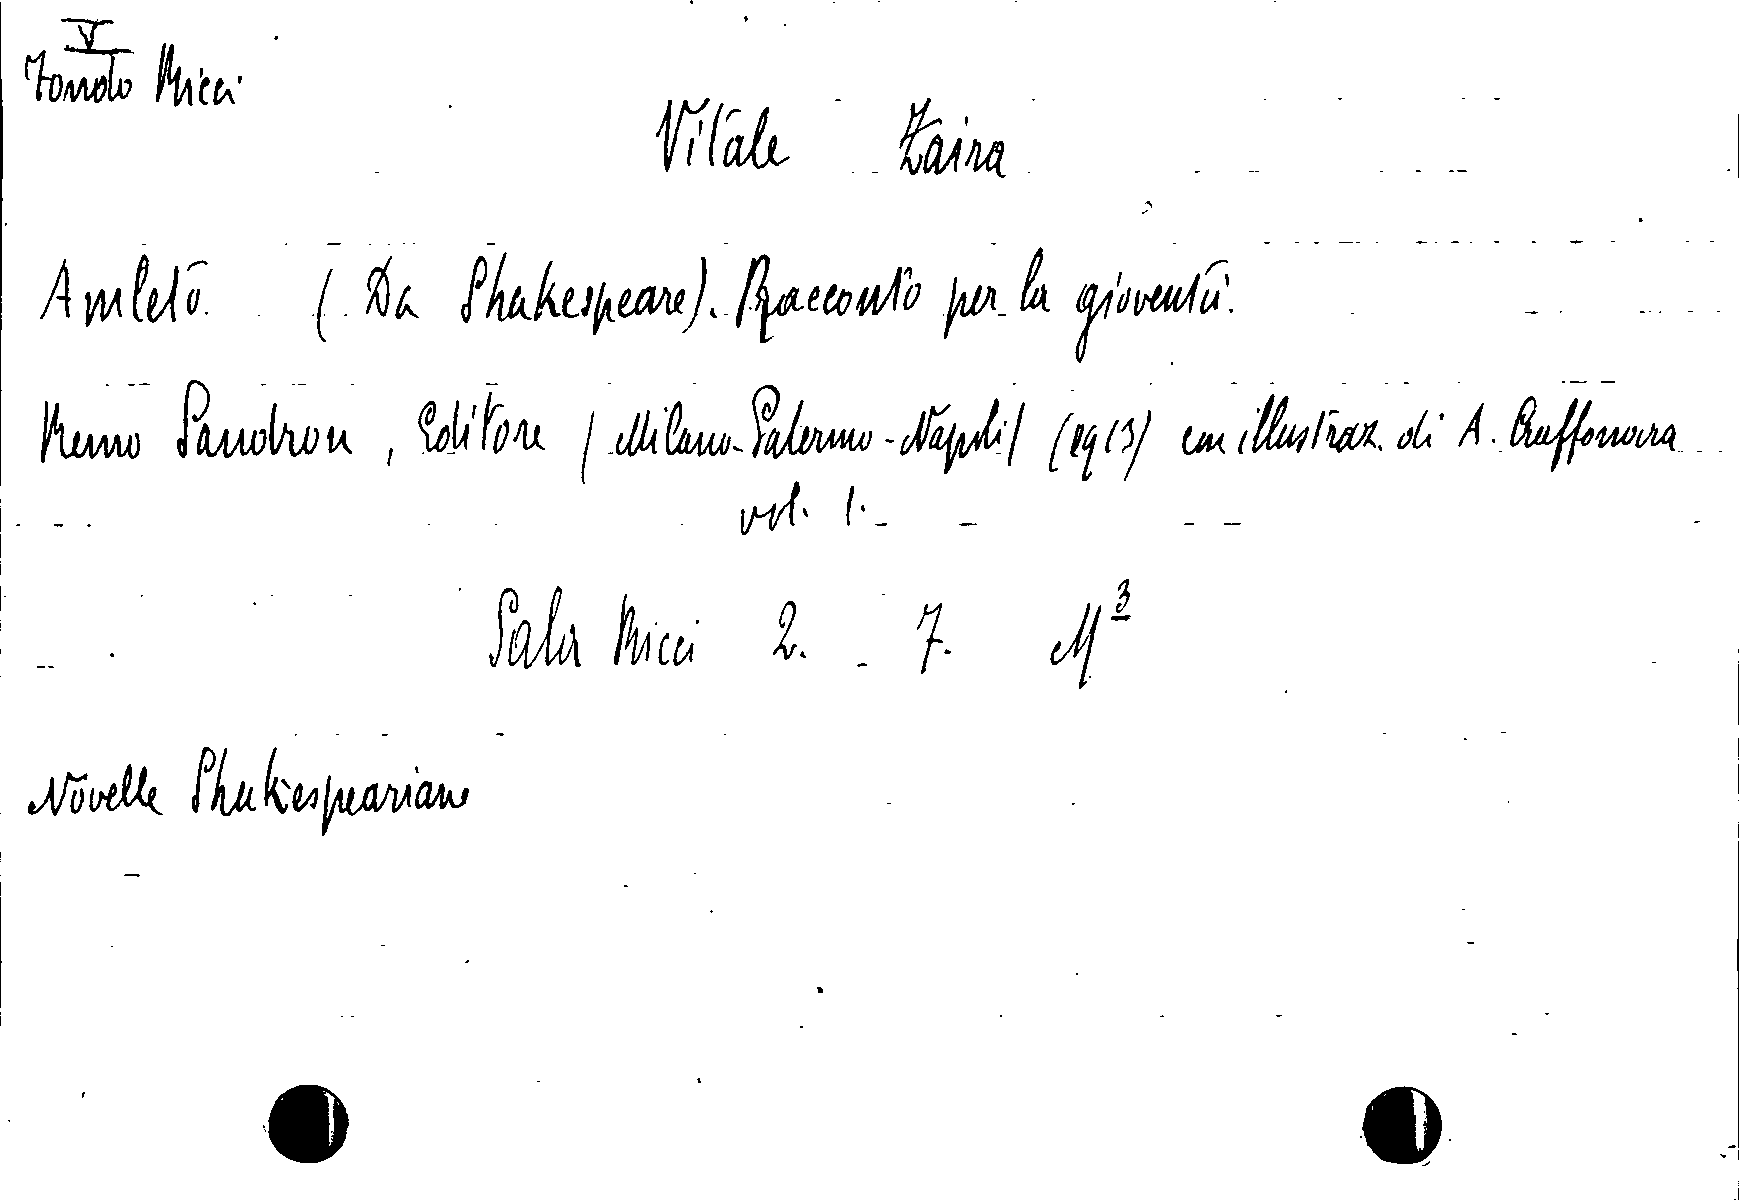 V
Fondo Ricci
Vitale Zaira
Amleto. (Da Shakespeare). Racconto per la gioventù.
Remo Sandron, Editore (Milano-Palermo-Napoli) (1913) con illustraz. di A. Craffonara
vol. 1.
Sala Ricci 2. 7. M3
Novelle Shakespeariane